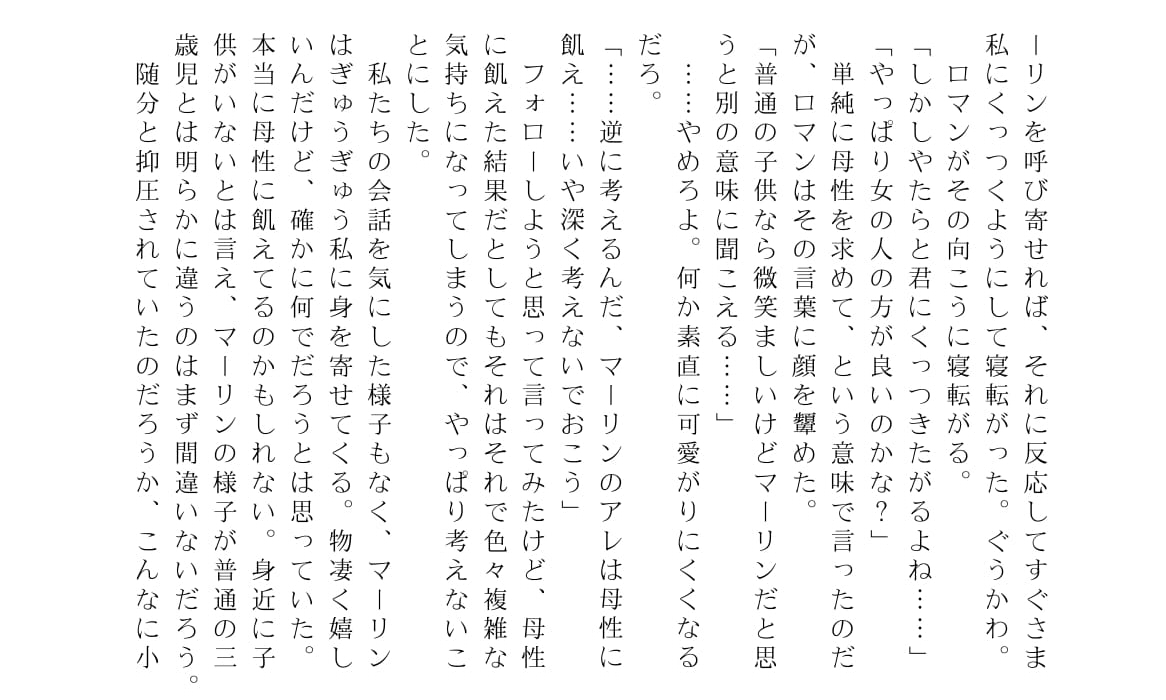 ーリンを呼び寄せれば、それに反応してすぐさま
私にくっつくようにして寝転がった。ぐうかわ。
　ロマンがその向こうに寝転がる。
「しかしやたらと君にくっつきたがるよね……」
「やっぱり女の人の方が良いのかな？」
　単純に母性を求めて、という意味で言ったのだ
が、ロマンはその言葉に顔を顰めた。
「普通の子供なら微笑ましいけどマーリンだと思
うと別の意味に聞こえる……」
　……やめろよ。何か素直に可愛がりにくくなる
だろ。
「……逆に考えるんだ、マーリンのアレは母性に
飢え……いや深く考えないでおこう」
　フォローしようと思って言ってみたけど、母性
に飢えた結果だとしてもそれはそれで色々複雑な
気持ちになってしまうので、やっぱり考えないこ
とにした。
　私たちの会話を気にした様子もなく、マーリン
はぎゅうぎゅう私に身を寄せてくる。物凄く嬉し
いんだけど、確かに何でだろうとは思っていた。
本当に母性に飢えてるのかもしれない。身近に子
供がいないとは言え、マーリンの様子が普通の三
歳児とは明らかに違うのはまず間違いないだろう。
　随分と抑圧されていたのだろうか、こんなに小